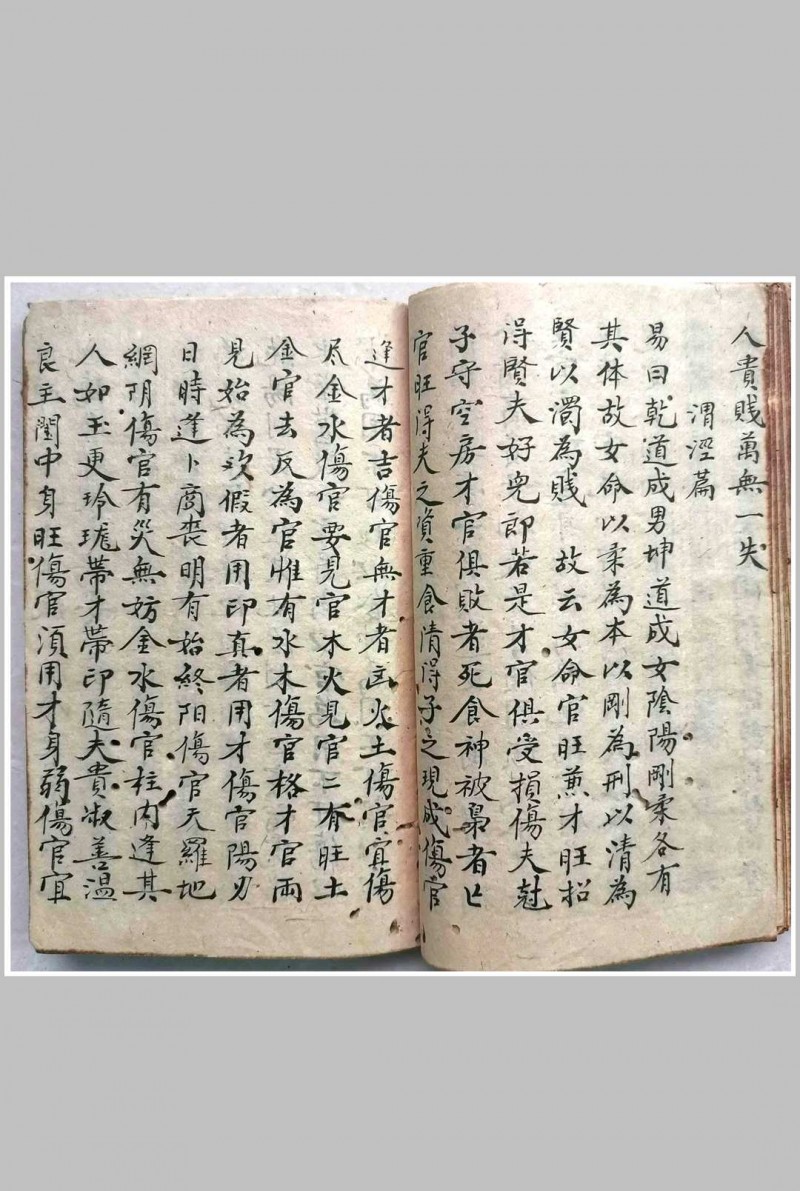 人貴賎萬無一失
渭涇篇
易曰乾道成男坤道成女陰陽剛柔各有
其体故女命以柔為本以剛為刑以清為
賢以濁為賎 故云女命官旺蕉才旺招
得賢夫好児郎若是才官俱受損傷夫尅
子守空房才官俱敗者死食神被梟者亡
官旺得夫之資重食清得子之現成傷官
逢才者吉傷官無才者凶火土傷官宜傷
尽金水傷官要見官木火見官二有旺土
金官去反為官惟有水木傷官格才官両
見始為欢假者用印真者用才傷官陽刃
日時逢卜商丧明有始終阳傷官天羅地
網阴傷官有災無妨金水傷官柱内逢其
人如玉更玲珑帯才帯印隨夫貴淑善温
良主閨中身旺傷官湏用才身弱傷官宜